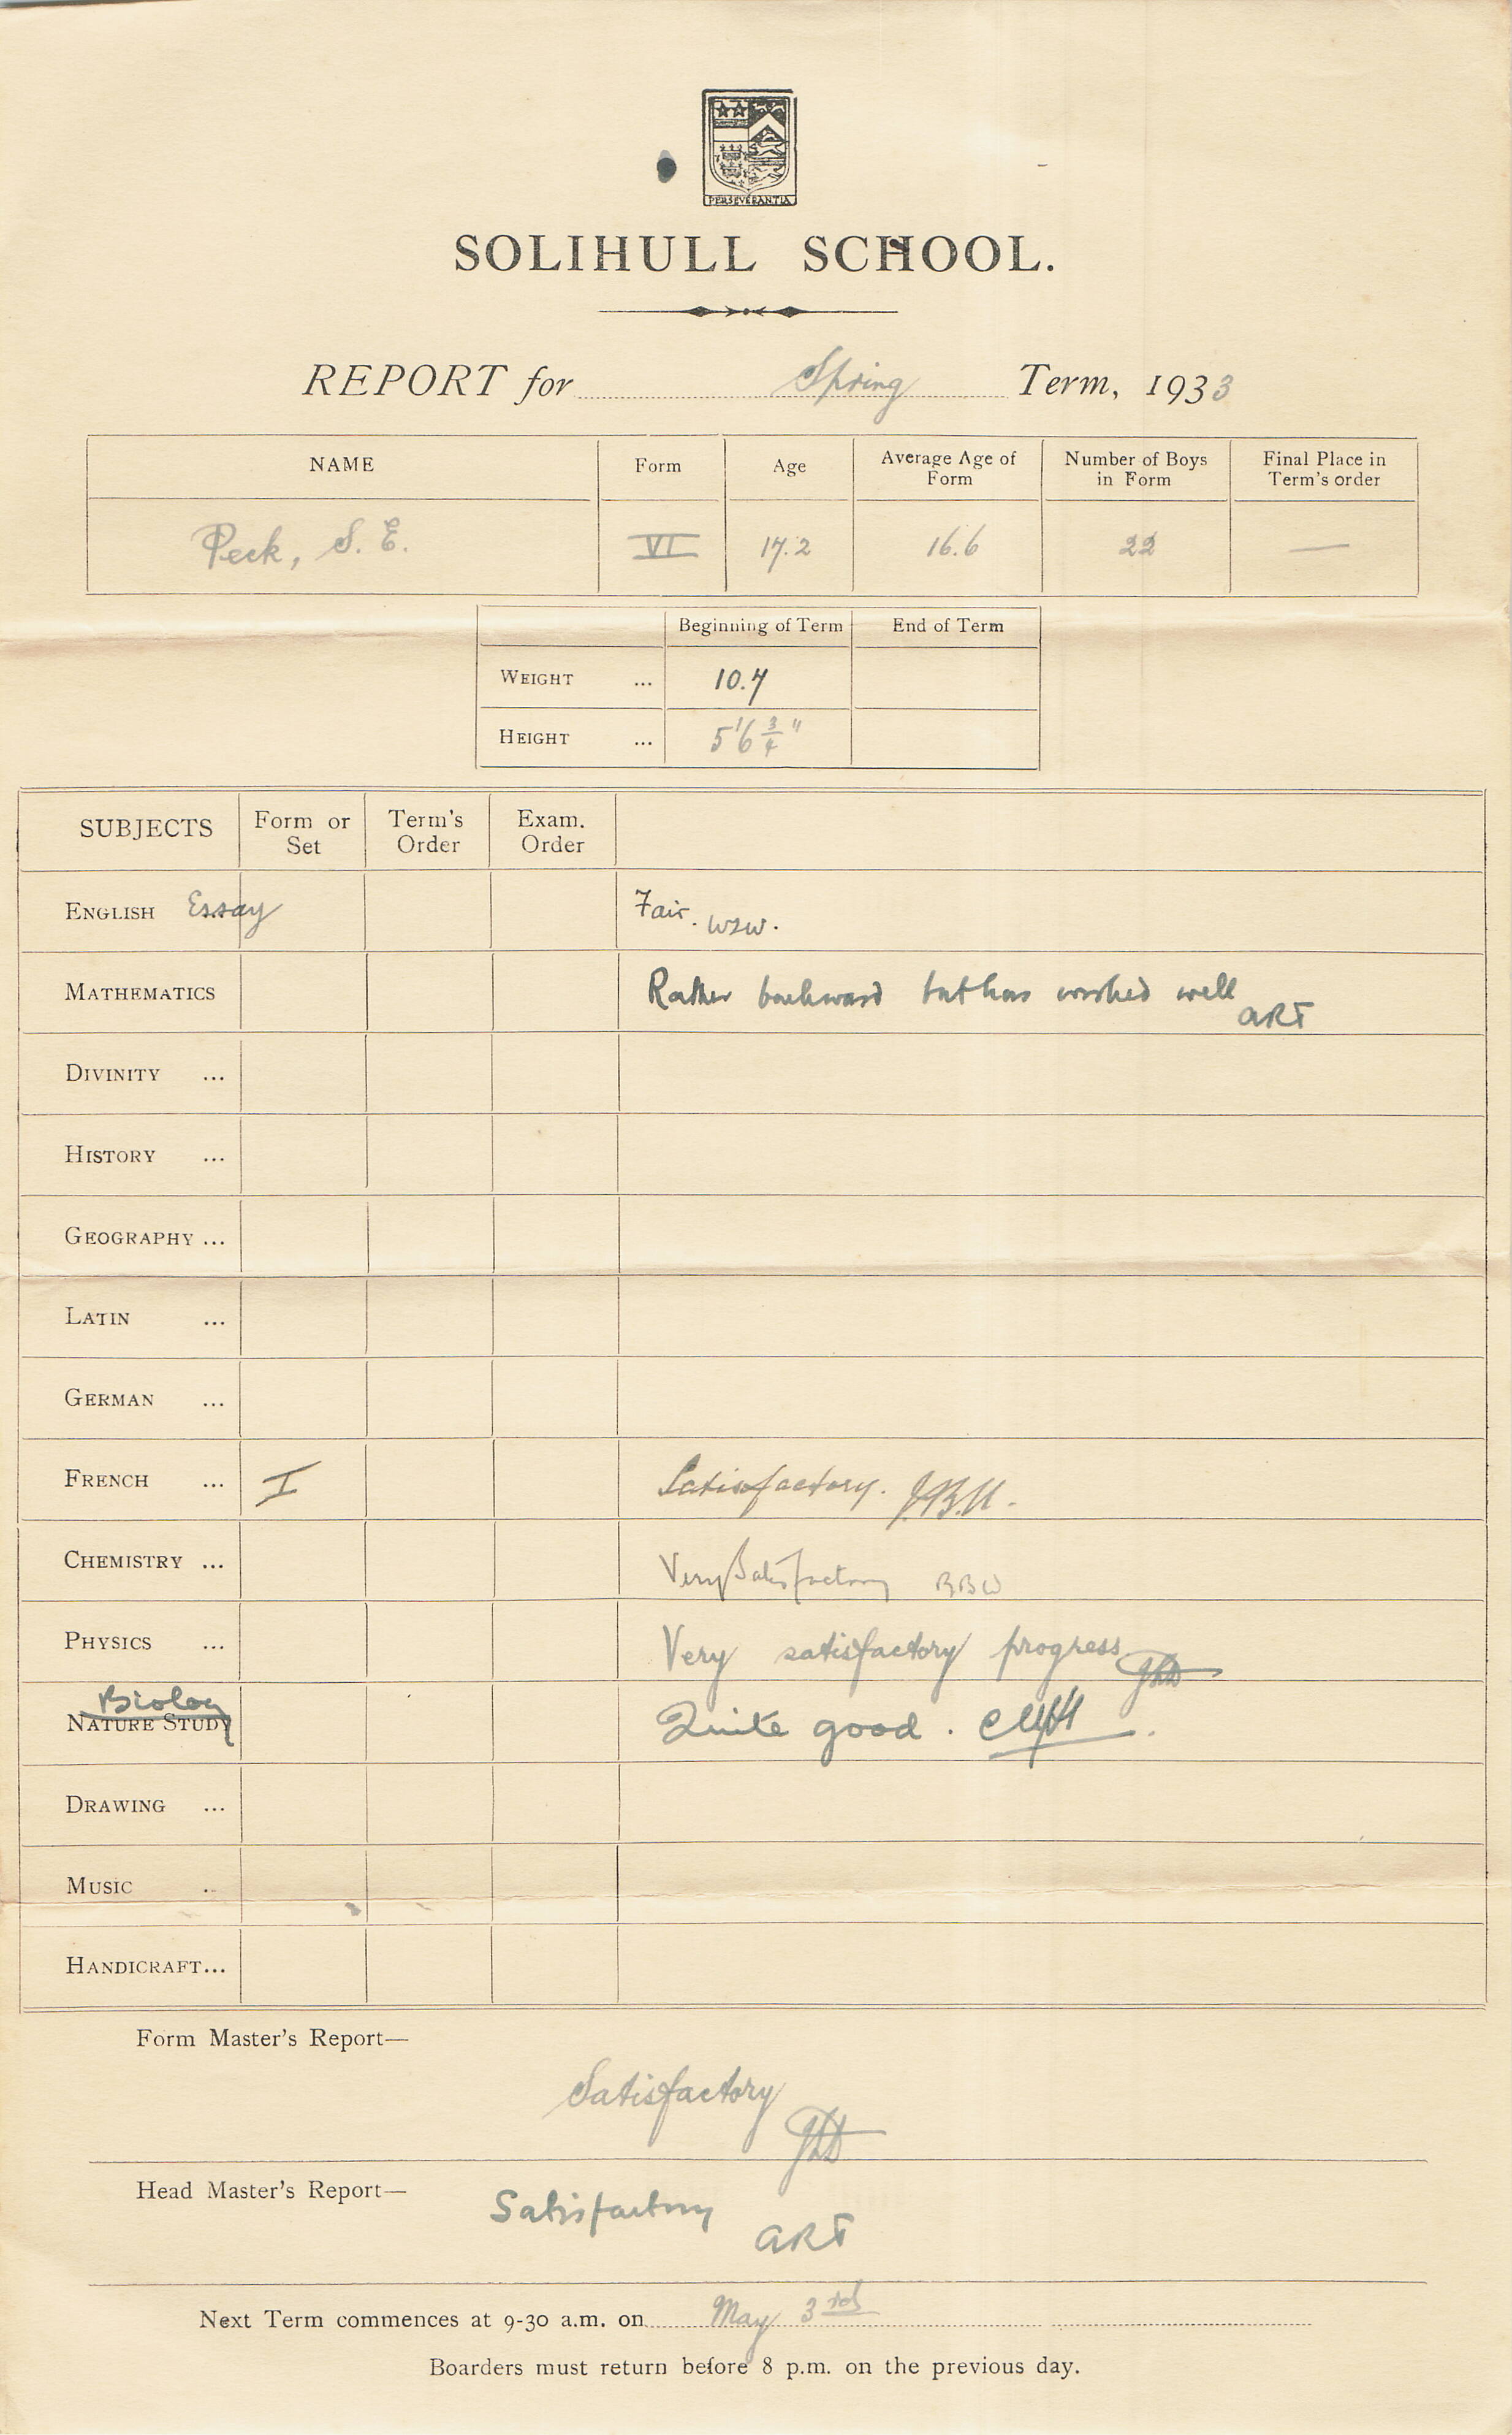 PERSEVERANTIA
SOLIHULL SCHOOL.
REPORT for Spring Term, 1933
NAME Form Age Average Age of Form Number of Boys in Form Final Place in Term's order
Peck, S. E. VI 17.2 16.6 22 —
Beginning of Term End of Term
WEIGHT ... 10.7
HEIGHT ... 5'6 3/4"
SUBJECTS Form or Set Term's Order Exam. Order
ENGLISH Essay Fair. WIW.
MATHEMATICS Rather backward but has worked well ART
DIVINITY ...
HISTORY ...
GEOGRAPHY ...
LATIN ...
GERMAN ...
FRENCH ... I Satisfactory.
CHEMISTRY ... Very Satisfactory BBW
PHYSICS ... Very satisfactory progress
Biology
NATURE STUDY Quite good.
DRAWING ...
MUSIC ..
HANDICRAFT...
Form Master's Report—
Satisfactory
Head Master's Report— Satisfactory
ART
Next Term commences at 9-30 a.m. on May 3rd
Boarders must return before 8 p.m. on the previous day.